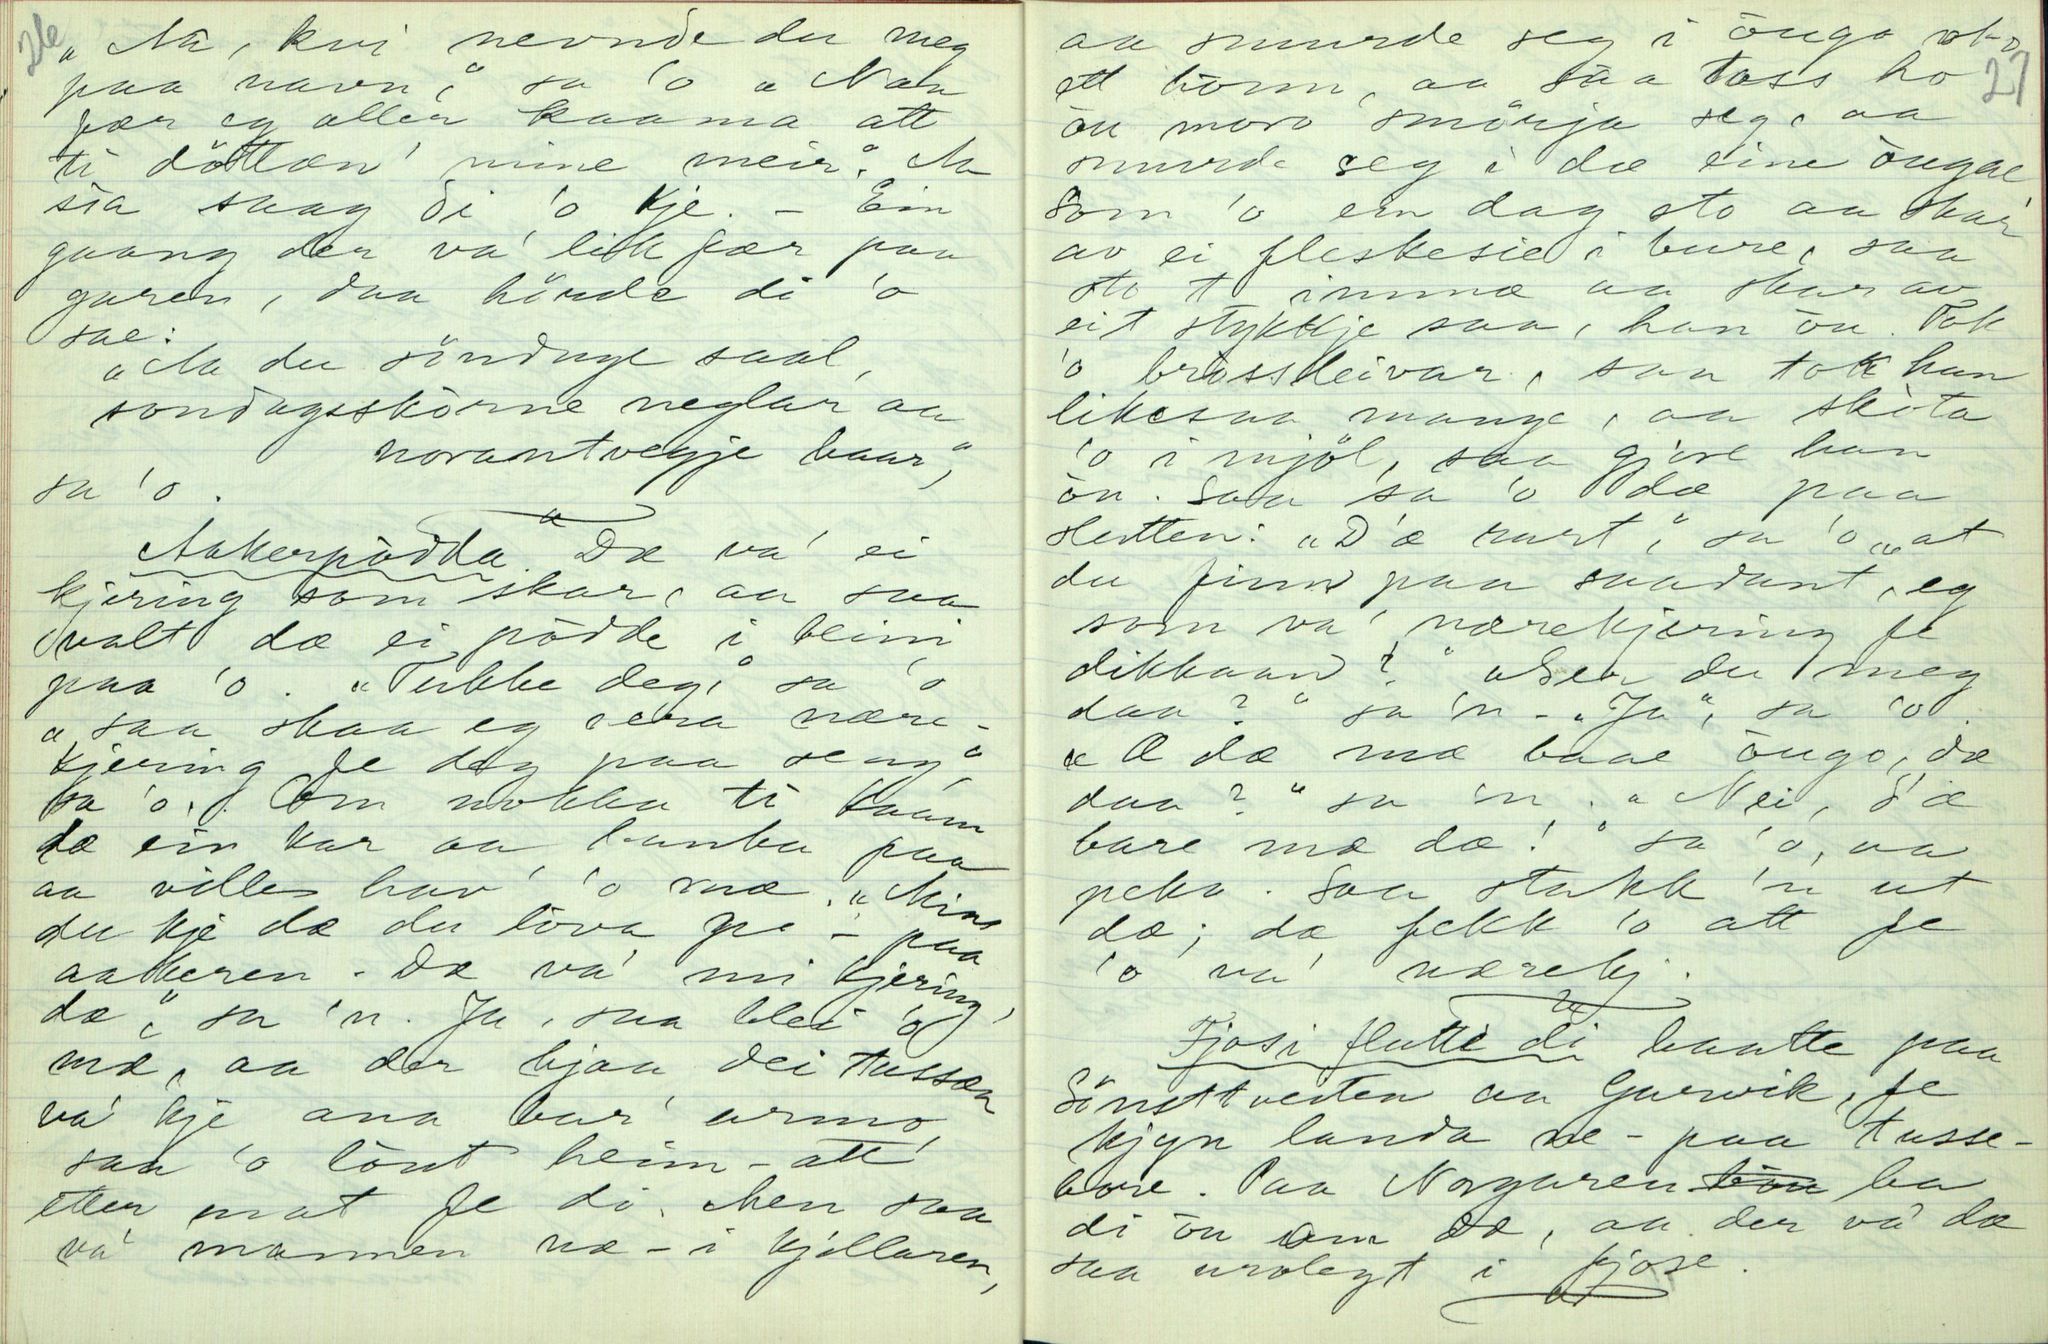 26
„Nå, kvi nevnde du meg
paa navn," sa 'o „Naa
fær eg aller kaama att
ti döttæn' mine meir." Aa
sia saag di 'o kje. – Ein
gaang der va' likfær paa
garen, daa hörde di 'o
sae:
„Aa du söndage saal,
sondagsskörne neglar aa
norantvegje haar,"
sa 'o.
Aakerpödda. Dæ va' ei
kjering som skar, aa saa
valt dæ ei pödde i
paa 'o. „Tukke deg," sa 'o
„saa skaa eg vera nære-
kjering fe deg paa seng"
sa 'o. Om nokka ti kaam
dæ ein kar aa banka paa
aa ville hav' 'o mæ. „Mins
du kje dæ du lova – paa
aakeren. Dæ va' mi kjering,
dæ," sa 'n. Ja, saa blei 'o
mæ, aa der hjaa dei tussæn
va' kje ana bar' armo
saa 'o lönt heim-att
etter mat fe di. Men saa
va' mannen næ-i kjellaren,
27
aa smurde seg i öugo
ett bönn, aa saa toss ho
öu moro smörja seg, aa
smurde seg i dæ eine öugæ
Som 'o ein dag sto aa skar
av ei fleskesie i bure, saa
sto 'n innmæ aa skar av
eit stykkje saa, han öu. Tok
'o brössleivar, saa tok han
likesaa mange, aa sköta
'o i mjöl, saa gjore han
öu. Saa sa 'o dæ paa
slutten: „D'æ rart," sa 'o, „at
du finn paa saadant, eg
som va' nærekjering fe
dikkaan?" „Ser du meg
daa?" sa 'n – „Ja", sa 'o.
„Æ dæ mæ baae öugo, dæ
daa?" sa 'n. „Nei, d'æ
bare mæ dæ!" sa 'o, aa
peka. Saa stakk 'n ut
dæ; dæ fekk 'o att fe
'o va' nærekj.
Fjosi flutte di baatte paa
Sönsttveiten aa Garvik, fe
kjyn landa ne-paa tusse-
bore. Paa Norgaren ba
di öu om dæ, aa der va' dæ
saa urolegt i fjose.